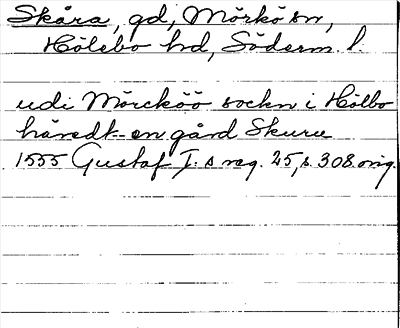 Skåra, gd, Mörkö sn,
Hölebo hd, Söderm. l.
udi Mörcköö sockn i Hölbo
häredt en gård Skuru
1555 Gustaf I:s reg. 25, s. 308. orig.